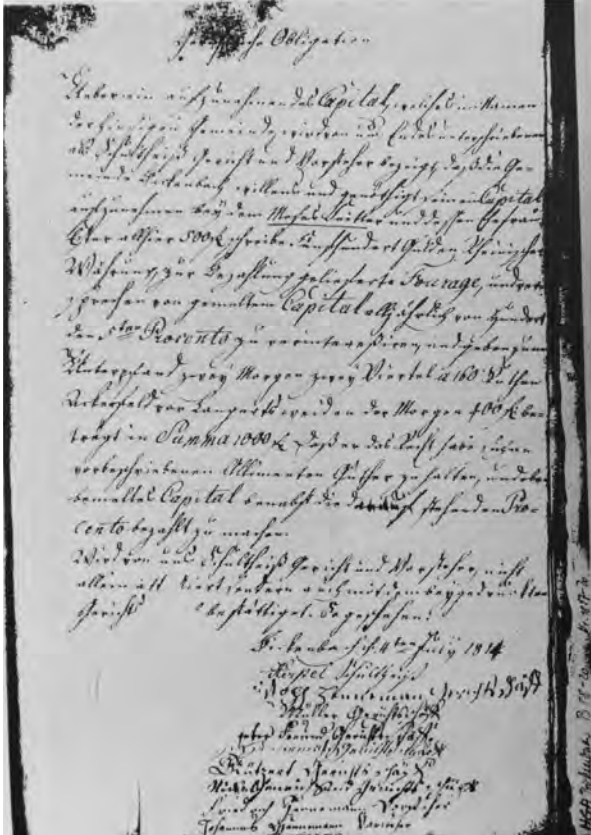 Obligation
Ueber ein aufzunehmendes Capital, welches im Namen
der hiesigen Gemeinde, wird von uns Endes unterschriebenen
als Schultheiß Gericht und Vorsteher bezeigt, daß die Ge-
meinde Bickenbach willens und genöthigt seie ein Capital
aufzunehmen bey dem Moses und dessen Ehefrau
allhier 500 fl schreibe Fünfhundert Gulden Rheinischer
Währung, zur Bezahlung gelieferte Fourage, und ver-
sprechen von gemeltem Capital alljährlich von Hundert
den 5ten Procento zu verinteressiren, und geben zum
Unterpfand zwey Morgen zwey Viertel a 160 Ruthen
Ackerfeld vor der Morgen 400 fl be-
trägt in Summa 1000 fl, daß er das Recht habe, sich an
vorbeschriebenen Güther zu halten, und ob
bemeltes Capital benebst die darauf stehenden Pro-
cento bezahlt zu machen.
Wird von uns Schultheiß Gericht und Vorsteher, nicht
allein sondern auch mit dem beygedruckten
Gerichts bestättiget. So geschehen:
Bickenbach d. 4ten July 1814
Schultheis
Gerichtsschöff
Müller Gerichtsschöff
Peter Gerichtsschöff
Gerichtsschöff
Gerichtsschöff
Gerichtsschöff
Friedrich Hennemann Vorsteher
Johannes Hennemann Vorsteher